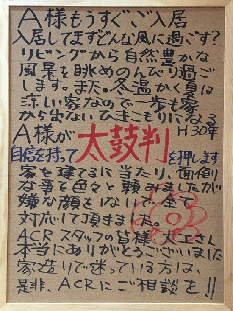 A様もうすぐご入居
入居してまずどんな風に過ごす?
リビングから自然豊かな
風景を眺めのんびり過ご
します。また、冬温かく夏は
涼しい家なので一歩も家
から出ないひきこもりになる
H30年
A様が
自信を持って太鼓判を押します
家を建てるに当たり、面倒
な事を色々と頼みましたが
嫌な顔をしないで全て
対応して頂きました。
ACRスタッフの皆様、大工さん
本当にありがとうございました
家造りで迷っている方は、
是非、ACRにご相談を!!